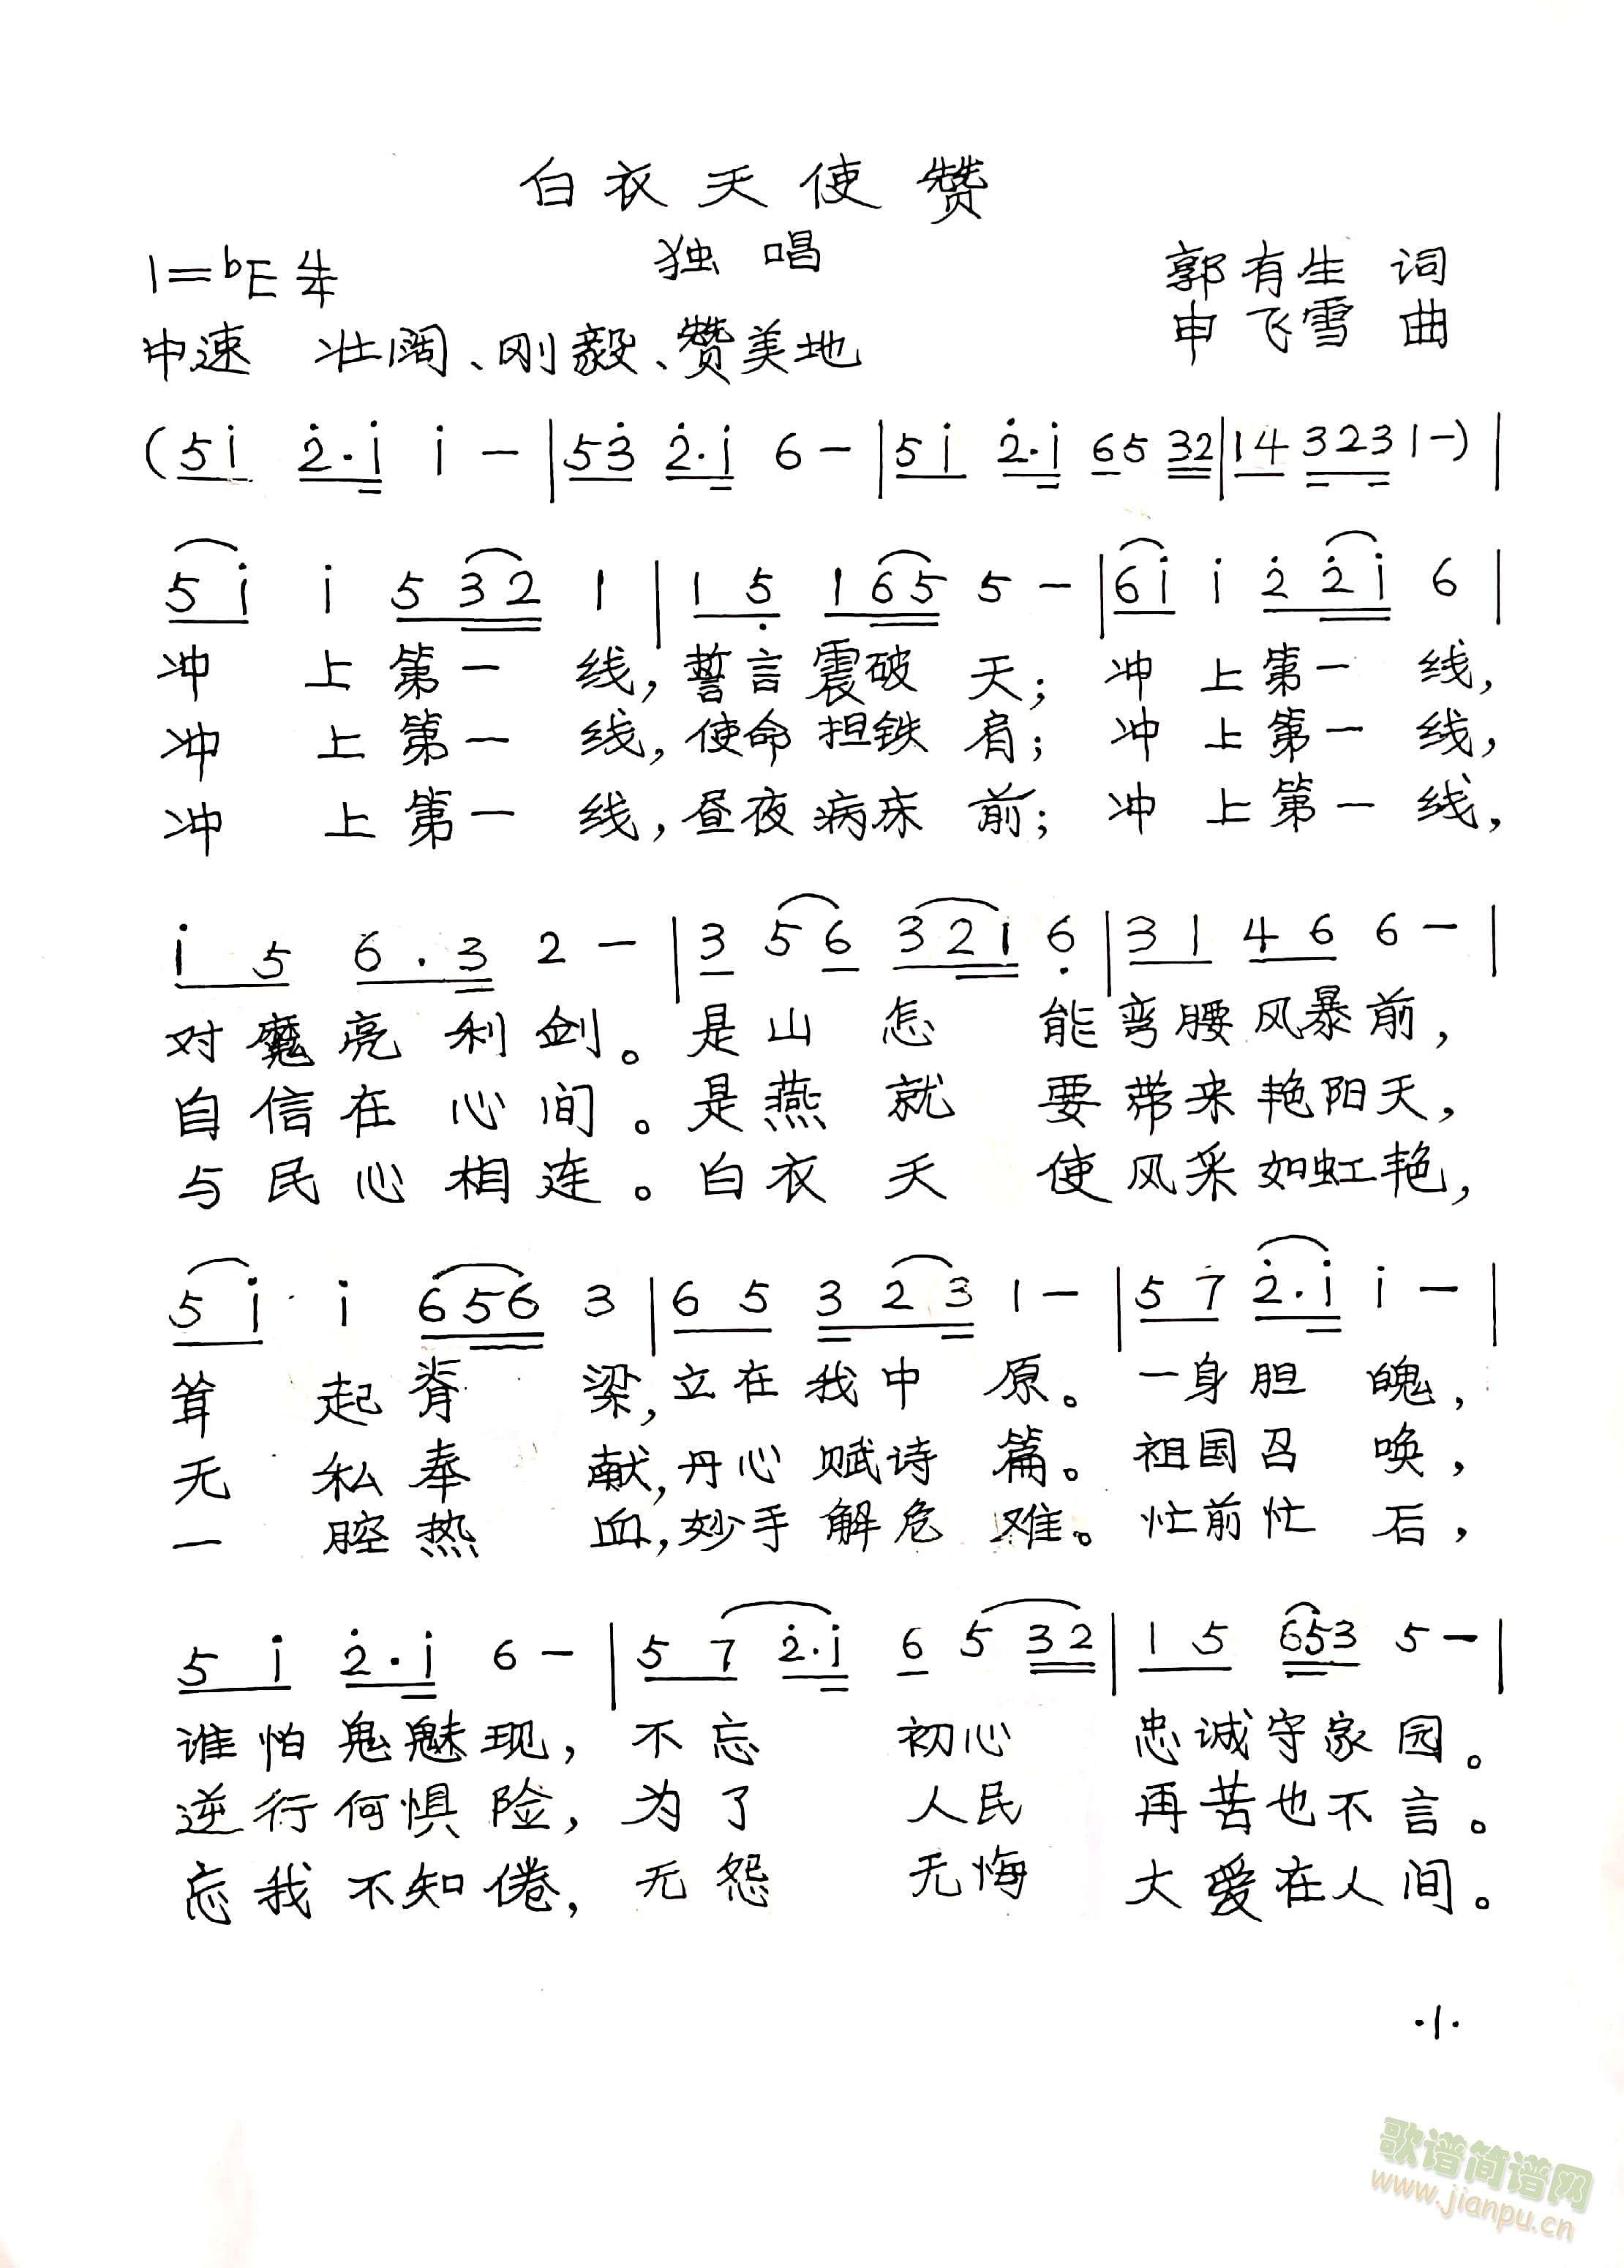 白衣天使赞
独唱
1=ᵇE 4/4
郭有生 词
中速 壮阔、刚毅、赞美地
申飞雪 曲
(5i 2̇·i i - | 53̇ 2̇·i 6 - | 5i 2̇·i 65 32 | 14 323 1 -) |
5i i 532 1 | 15̣ 165 5 - | 6i i 2̇2̇i 6 |
冲上第一线，誓言震破天；冲上第一线，
冲上第一线，使命担铁肩；冲上第一线，
冲上第一线，昼夜病床前；冲上第一线，
i5 6·3 2 - | 3 56 321 6̣ | 31 46 6 - |
对魔亮利剑。是山怎能弯腰风暴前，
自信在心间。是燕就要带来艳阳天，
与民心相连。白衣天使风采如虹艳，
5i i 656 3 | 65 323 1 - | 57 2̇·i i - |
耸起脊梁，立在我中原。一身胆魄，
无私奉献，丹心赋诗篇。祖国召唤，
一腔热血，妙手解危难。忙前忙后，
5i 2̇·i 6 - | 57 2̇·i 6 5 32 | 15 653 5 - |
谁怕鬼魅现，不忘初心忠诚守家园。
逆行何惧险，为了人民再苦也不言。
忘我不知倦，无怨无悔大爱在人间。
·1·
歌谱简谱网
www.jianpu.cn